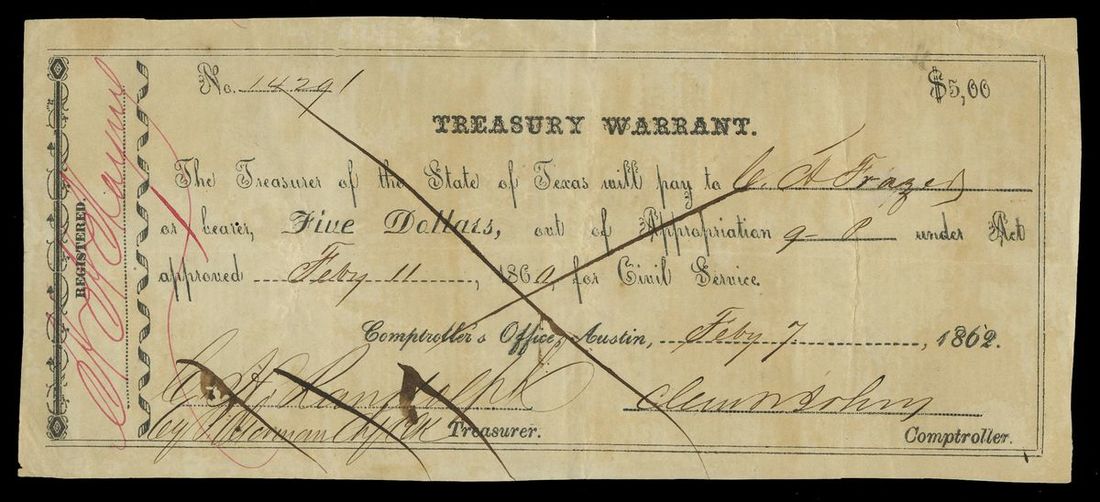 No. 14291
$5,00
TREASURY WARRANT.
The Treasurer of the State of Texas will pay to C. A Frazer
or bearer, Five Dollars, out of Appropriation 9-8 under Act
approved Feby 11, 1860, for Civil Service.
Comptroller's Office, Austin, Feby 7, 1862.
C. H. Randolph
Clem R Johns
by Chf Clk Treasurer.
Comptroller.
REGISTERED.